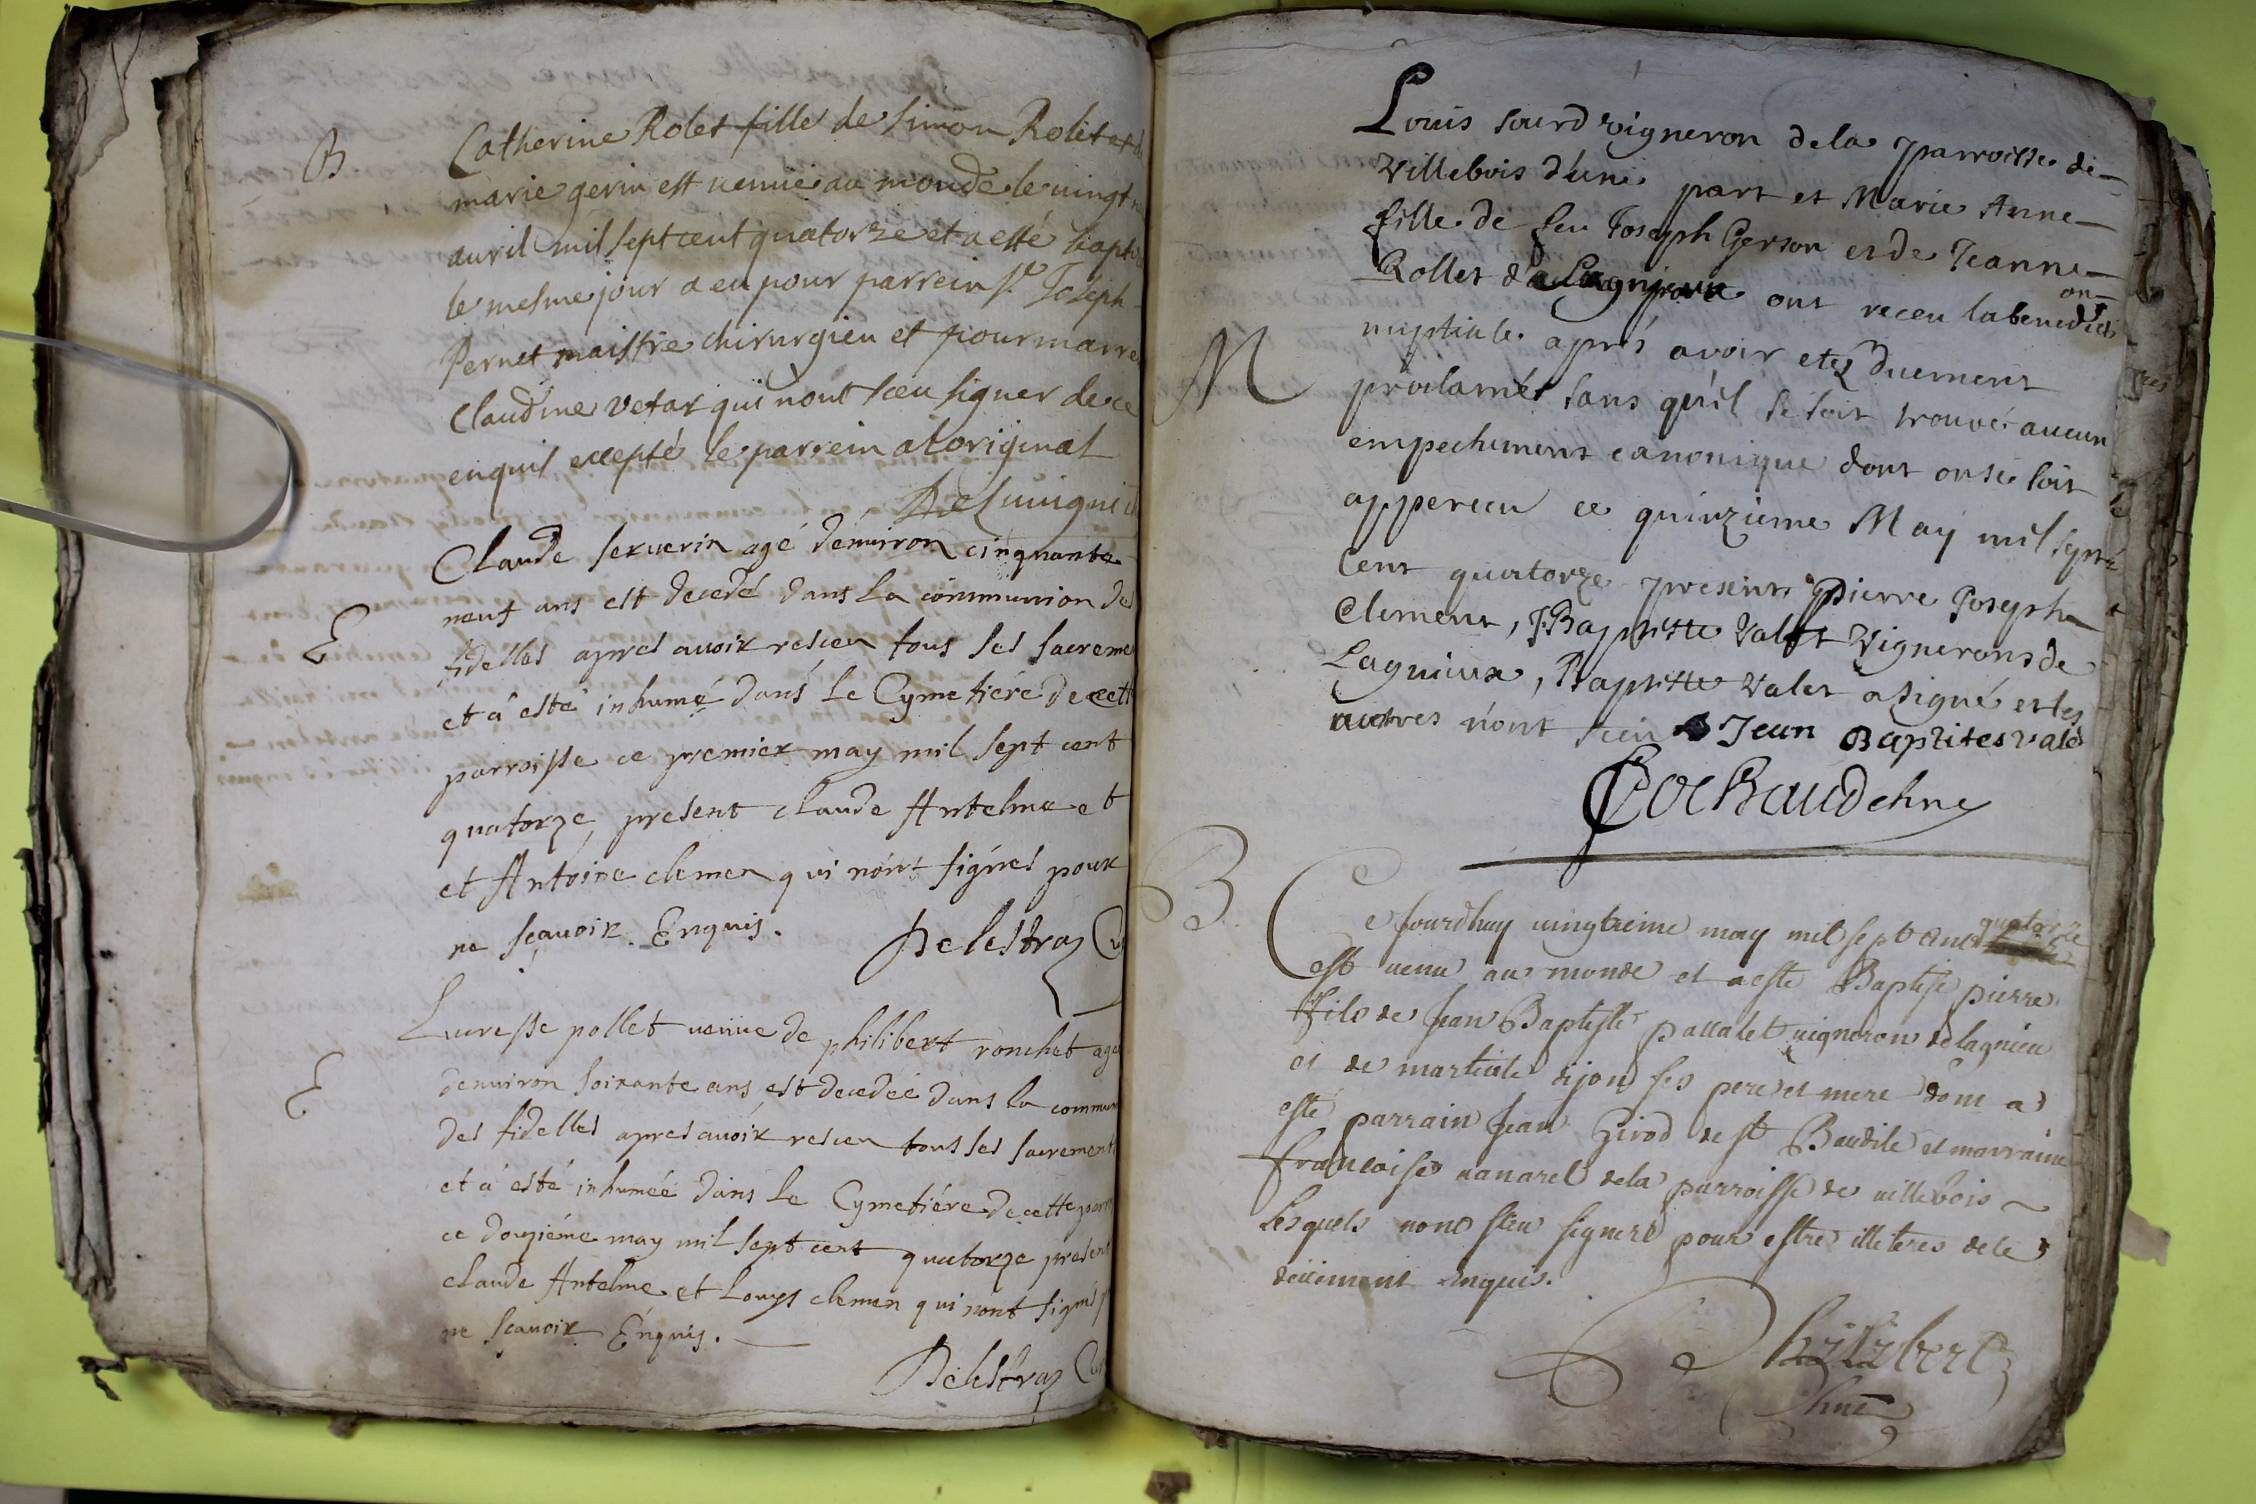 B
Catherine Rolet fille de simon Rolet et de
marie gerin est venue au monde le vingt
avril mil sept cent quatorze et a esté bapti
le mesme jour a eu pour parrein sr Joseph
Pernet maistre chirurgien et pour marre
Claudine vetar qui nont sceu signer de ce
enquis excepté le parrein a loriginal
E
Claude serverin agé denviron cinquante
neuf ans est decedé dans La communion des
fidelles apres avoir resceu tous ses sacreme
et à esté inhumé dans Le Cymetiére de cett
parroisse ce premier may mil sept cent
quatorze, present claude Antelme et
et Antoine clemen qui nont signés pour
ne sçavoir. Enquis.
Delestraz Cu
E
Lucresse pollet veuve de philibert ronchet agee
denviron soixante ans, est decedée dans la commun
des fidelles apres avoir resceu tous ses sacrement
et à esté inhumée dans Le Cymetiére de cette parr
ce douziéme may mil sept cent quatorze present
claude Antelme et Louys clemen qui nont signé p
ne scavoir Enquis.
Delestraz Cu
M
Louis sourd vigneron de la parroisse de
Villebois d'une part et Marie Anne
fille de feu Joseph Gerson et de Jeanne
Rollet de Lagnieux ont receu la benedicti
on
nuptiale aprés avoir etez duement
proclamés sans qu'il se soit trouvé aucun
empechement canonique dont on se soit
apperceu ce quinzieme May mil sept
Cent quatorze presents Pierre Joseph
Clement, J. Baptiste Valet Vignerons de
Lagnieux, Baptiste Valet a signé et les
autres n'ont sceu Jean Baptites valet
Cochaud chne
B
Ce jourdhuy vingtieme may mil sept cent quatorze
est venu au monde et a esté Baptisé pierre
fils de Jean Baptiste pallalet vigneron de lagnieu
et de martiale dijon ses pere et mere dont a
esté parrain Jean Girod de st Baudile et marraine
francoise vanarel de la parroisse de villebois
lesquels nont sceu signere pour estre illeteres de ce
deüement enquis.
Philibert
chne